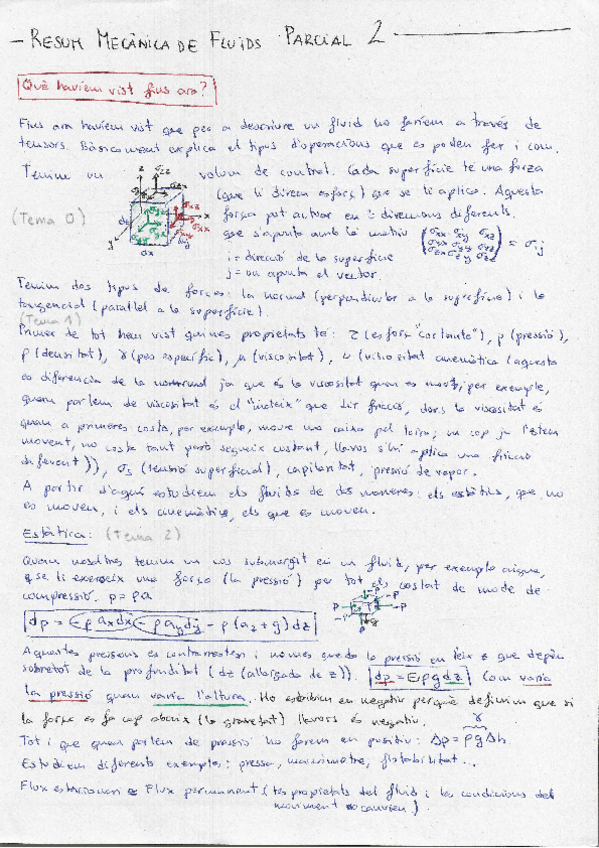 - RESUM MECÀNICA DE FLUIDS PARCIAL 2
Què havíem vist fins ara?
Fins ara havíem vist que per a descriure un fluid ho faríem a través de
tensors. Bàsicament explica el tipus d'operacions que es poden fer i com.
Tenim un volum de control. Cada superfície té una força
(que li direm esforç) que se li aplica. Aquesta
(Tema 0) força pot actuar en 3 direccions diferents.
que s'apunta amb la matriu (σxx σxy σxz σyx σyy σyz σzx σzy σzz) = σij
i = direcció de la superfície
j = on apunta el vector.
Tenim dos tipus de forces: la normal (perpendicular a la superfície) i la
tangencial (paral·lel a la superfície).
(Tema 1)
Primer de tot hem vist quines propietats té: τ (esforç "cortante"), p (pressió),
ρ (densitat), γ (pes específic), μ (viscositat), ν (viscositat cinemàtica (aquesta
es diferencia de la normal ja que és la viscositat quan es mou, per exemple,
quan parlem de viscositat és el "mateix" que dir fricció, doncs la viscositat és
quan a primeres costa, per exemple, moure una caixa pel terra; un cop ja l'estem
movent, no costa tant però segueix costant, llavors s'hi aplica una fricció
diferent)), σs (tensió superficial), capilaritat, pressió de vapor.
A partir d'aquí estudiem els fluids de dos maneres: els estàtics, que no
es moven, i els cinemàtics, els que es moven.
Estàtica: (Tema 2)
Quan nosaltres tenim un cos submergit en un fluid, per exemple aigua,
se li exerceix una força (la pressió) per tot els costat de mode de
compressió. p = ρa
dp = -ρ ax dx - ρ ay dy - ρ (az + g) dz
Aquestes pressions es contraresten i només queda la pressió en l'eix z que depèn
sobretot de la profunditat (dz (allargada de z)). dp = -ρg dz Com varia
la pressió quan varia l'altura. Ho escribim en negatiu perquè definim que si
la força es fa cap abaix (la gravetat) llavors és negatiu.
Tot i que quan parlem de pressió ho farem en positiu: Δp = ρgΔh γ
Estudiem diferents exemples: pressa, manòmetre, flotabilitat...
Flux estacionari = Flux permanent (les propietats del fluid i les condicions del
moviment no canvien).